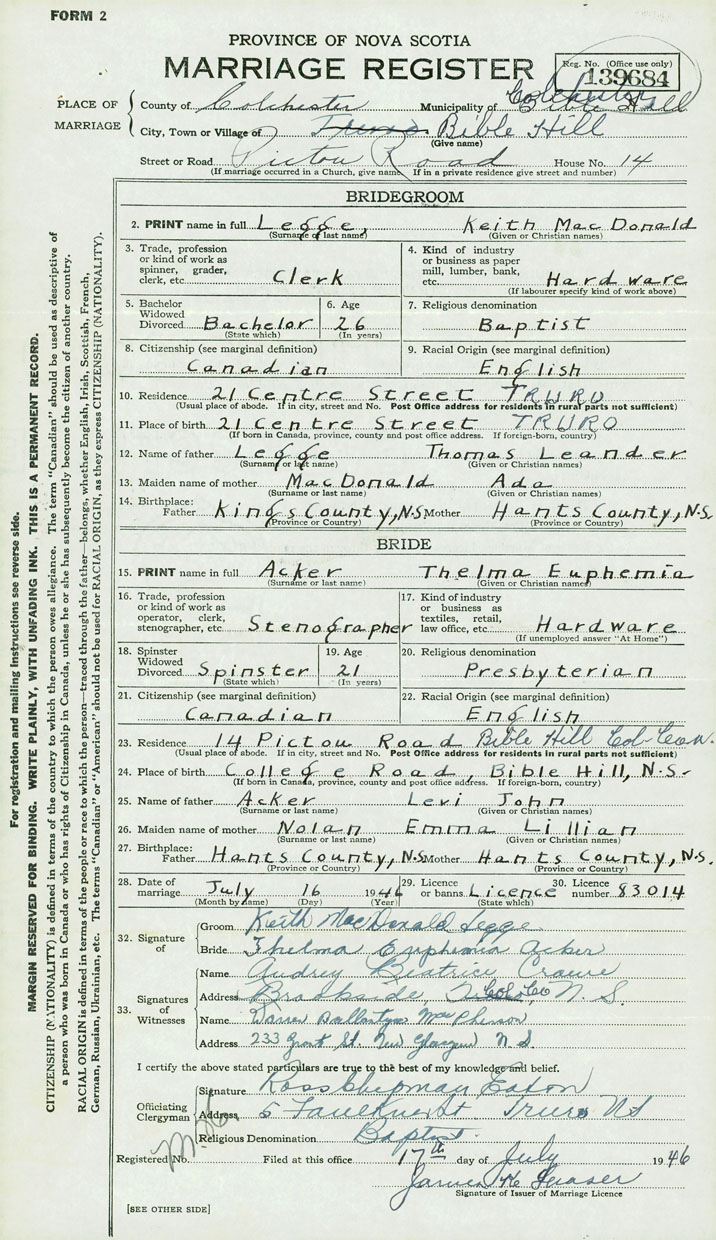 FORM 2
PROVINCE OF NOVA SCOTIA
MARRIAGE REGISTER
Reg. No. (Office use only)
139684
PLACE OF MARRIAGE
County of Colchester Municipality of Colchester
City, Town or Village of Truro Bible Hill
(Give name)
Street or Road Pictou Road House No. 14
(If marriage occurred in a Church, give name. If in a private residence give street and number)
BRIDEGROOM
2. PRINT name in full Legge, Keith MacDonald
(Surname or last name) (Given or Christian names)
3. Trade, profession or kind of work as spinner, grader, clerk, etc. Clerk
4. Kind of industry or business as paper mill, lumber, bank, etc. Hardware
(If labourer specify kind of work above)
5. Bachelor Widowed Divorced Bachelor
(State which)
6. Age 26
(In years)
7. Religious denomination
Baptist
8. Citizenship (see marginal definition)
Canadian
9. Racial Origin (see marginal definition)
English
10. Residence 21 Centre Street TRURO
(Usual place of abode. If in city, street and No. Post Office address for residents in rural parts not sufficient)
11. Place of birth 21 Centre Street TRURO
(If born in Canada, province, county and post office address. If foreign-born, country)
12. Name of father Legge Thomas Leander
(Surname or last name) (Given or Christian names)
13. Maiden name of mother MacDonald Ada
(Surname or last name) (Given or Christian names)
14. Birthplace: Father Kings County, N.S. Mother Hants County, N.S.
(Province or Country) (Province or Country)
BRIDE
15. PRINT name in full Acker Thelma Euphemia
(Surname or last name) (Given or Christian names)
16. Trade, profession or kind of work as operator, clerk, stenographer, etc. Stenographer
17. Kind of industry or business as textiles, retail, law office, etc. Hardware
(If unemployed answer "At Home")
18. Spinster Widowed Divorced Spinster
(State which)
19. Age 21
(In years)
20. Religious denomination
Presbyterian
21. Citizenship (see marginal definition)
Canadian
22. Racial Origin (see marginal definition)
English
23. Residence 14 Pictou Road Bible Hill Col. Co. N.
(Usual place of abode. If in city, street and No. Post Office address for residents in rural parts not sufficient)
24. Place of birth College Road, Bible Hill, N.S.
(If born in Canada, province, county and post office address. If foreign-born, country)
25. Name of father Acker Levi John
(Surname or last name) (Given or Christian names)
26. Maiden name of mother Nolan Emma Lillian
(Surname or last name) (Given or Christian names)
27. Birthplace: Father Hants County, N.S. Mother Hants County, N.S.
(Province or Country) (Province or Country)
28. Date of marriage July 16 1946
(Month by name) (Day) (Year)
29. Licence or banns Licence
(State which)
30. Licence number 83014
32. Signature of
Groom Keith MacDonald Legge
Bride Thelma Euphemia Acker
33. Signatures of Witnesses
Name Audrey Beatrice Crowe
Address Brookside, Col. Co N.S.
Name Warren Ballantyne MacPherson
Address 233 Grant St. New Glasgow N.S.
I certify the above stated particulars are true to the best of my knowledge and belief.
Officiating Clergyman
Signature Ross Chipman Eaton
Address 5 Faulkner St. Truro NS
Religious Denomination Baptist
Registered No. Filed at this office 17th day of July 1946
Signature of Issuer of Marriage Licence
[SEE OTHER SIDE]
For registration and mailing instructions see reverse side.
MARGIN RESERVED FOR BINDING. WRITE PLAINLY, WITH UNFADING INK. THIS IS A PERMANENT RECORD.
CITIZENSHIP (NATIONALITY) is defined in terms of the country to which the person owes allegiance. The term "Canadian" should be used as descriptive of
a person who was born in Canada or who has rights of Citizenship in Canada, unless he or she has subsequently become the citizen of another country.
RACIAL ORIGIN is defined in terms of the people or race to which the person—traced through the father—belongs, whether English, Irish, Scottish, French,
German, Russian, Ukrainian, etc. The terms "Canadian" or "American" should not be used for RACIAL ORIGIN, as they express CITIZENSHIP (NATIONALITY).